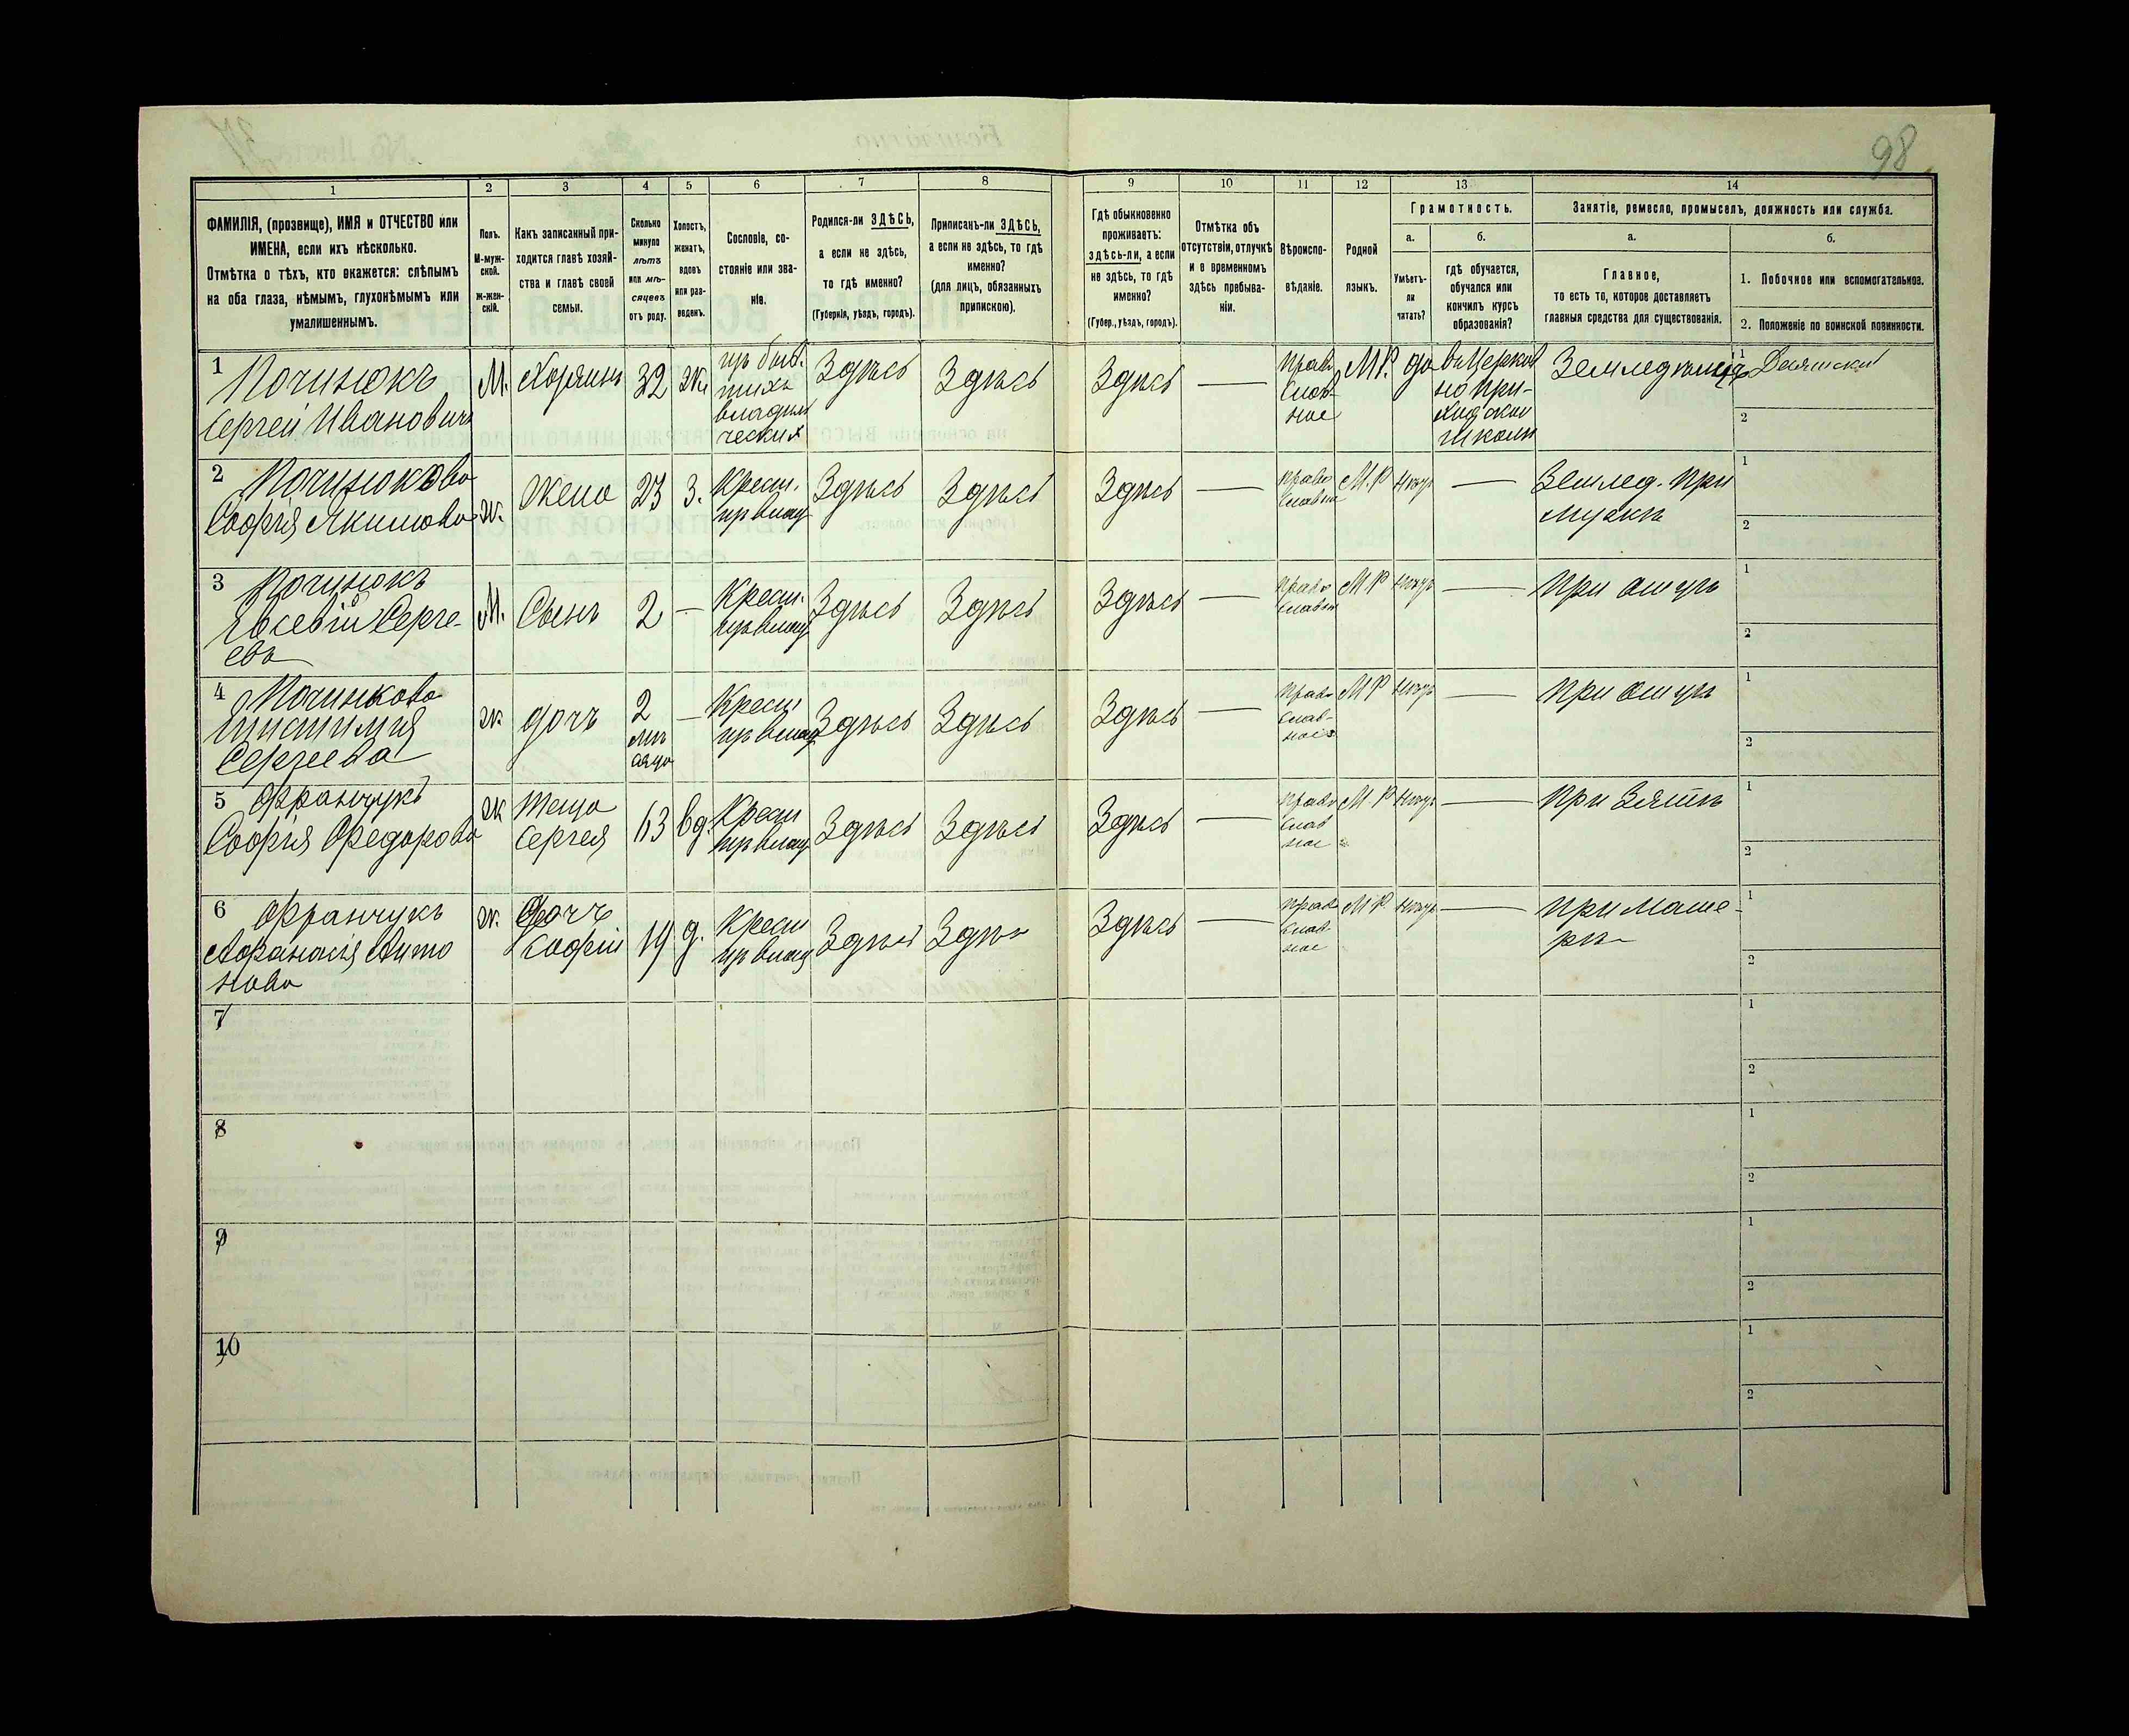 98
1
2
3
4
5
6
7
8
9
10
11
12
13
14
ФАМИЛІЯ, (прозвище), ИМЯ и ОТЧЕСТВО или
ИМЕНА, если ихъ нѣсколько.
Отмѣтка о тѣхъ, кто окажется: слѣпымъ
на оба глаза, нѣмымъ, глухонѣмымъ или
умалишеннымъ.
Полъ.
М-муж-
ской.
Ж-жен-
скій.
Какъ записанный при-
ходится главѣ хозяй-
ства и главѣ своей
семьи.
Сколько
минуло
лѣтъ
или мѣ-
сяцевъ
отъ роду.
Холостъ,
женатъ,
вдовъ
или раз-
веденъ.
Сословіе, со-
стояніе или зва-
ніе.
Родился-ли ЗДѢСЬ,
а если не здѣсь,
то гдѣ именно?
(Губернія, уѣздъ, городъ).
Приписанъ-ли ЗДѢСЬ,
а если не здѣсь, то гдѣ
именно?
(для лицъ, обязанныхъ
припискою).
Гдѣ обыкновенно
проживаетъ:
здѣсь-ли, а если
не здѣсь, то гдѣ
именно?
(Губер., уѣздъ, городъ).
Отмѣтка объ
отсутствіи, отлучкѣ
и о временномъ
здѣсь пребыва-
ніи.
Вѣроиспо-
вѣданіе.
Родной
языкъ.
Грамотность.
а.
Умѣетъ-
ли
читать?
б.
гдѣ обучается,
обучался или
кончилъ курсъ
образованія?
Занятіе, ремесло, промыселъ, должность или служба.
а.
Главное,
то есть то, которое доставляетъ
главныя средства для существованія.
б.
1. Побочное или вспомогательное.
2. Положеніе по воинской повинности.
1
Починюкъ
Сергей Ивановичъ
М.
Хозяинъ
32
Ж.
Здѣсь
Здѣсь
Здѣсь
—
право
слав-
ное
М.Р.
да
въ Церков
но при-
ходской
школѣ
1
2
2
Починюкова
Софія Якимова
Ж.
Жена
23
З.
Крест.
Здѣсь
Здѣсь
Здѣсь
—
право
М.Р
—
Землед. при
мужѣ
1
2
3
Починюкъ
Евсевій Серге-
евъ
М.
Сынъ
2
—
Крест.
Здѣсь
Здѣсь
Здѣсь
—
право
М Р
—
при отцѣ
1
2
4
Сергеева
Ж
дочь
2
мѣ
сяца
—
Крест
Здѣсь
Здѣсь
Здѣсь
—
право
слав-
ное
М Р
—
при отцѣ
1
2
5
Франчукъ
Софія Федорова
Ж
Теща
Сергея
63
вд.
Крест
Здѣсь
Здѣсь
Здѣсь
—
право
слав
ное
М.Р
—
при Зятѣ
1
2
6
Франчукъ
Афанасія Анто
нова
Ж.
Дочь
Софіи
19
д.
Крест
Здѣсь
Здѣсь
Здѣсь
—
право
слав
ное
М Р
—
при мате-
рѣ
1
2
7
1
2
8
1
2
9
1
2
10
1
2